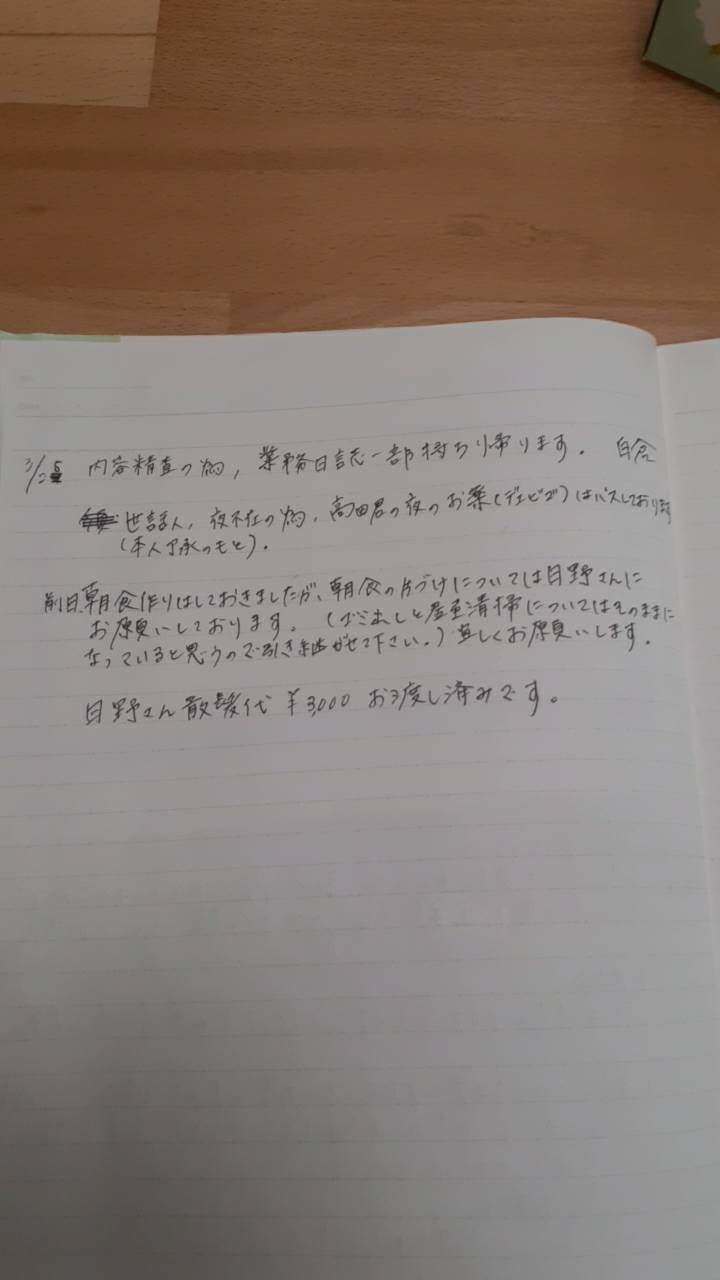 3/25 内容精査の為, 業務日誌一部持ち帰ります. 白倉
世話人, 夜不在の為, 高田君の夜のお薬(デエビゴ)はパスしております
(本人了承のもと).
前日,朝食作りはしておきましたが、朝食の片づけについては日野さんに
お願いしております。(ゴミ出しと居室清掃についてはそのままに
なっていると思うので引き継がせて下さい.)宜しくお願いします.
日野さん散髪代 ¥3,000 お渡し済みです。